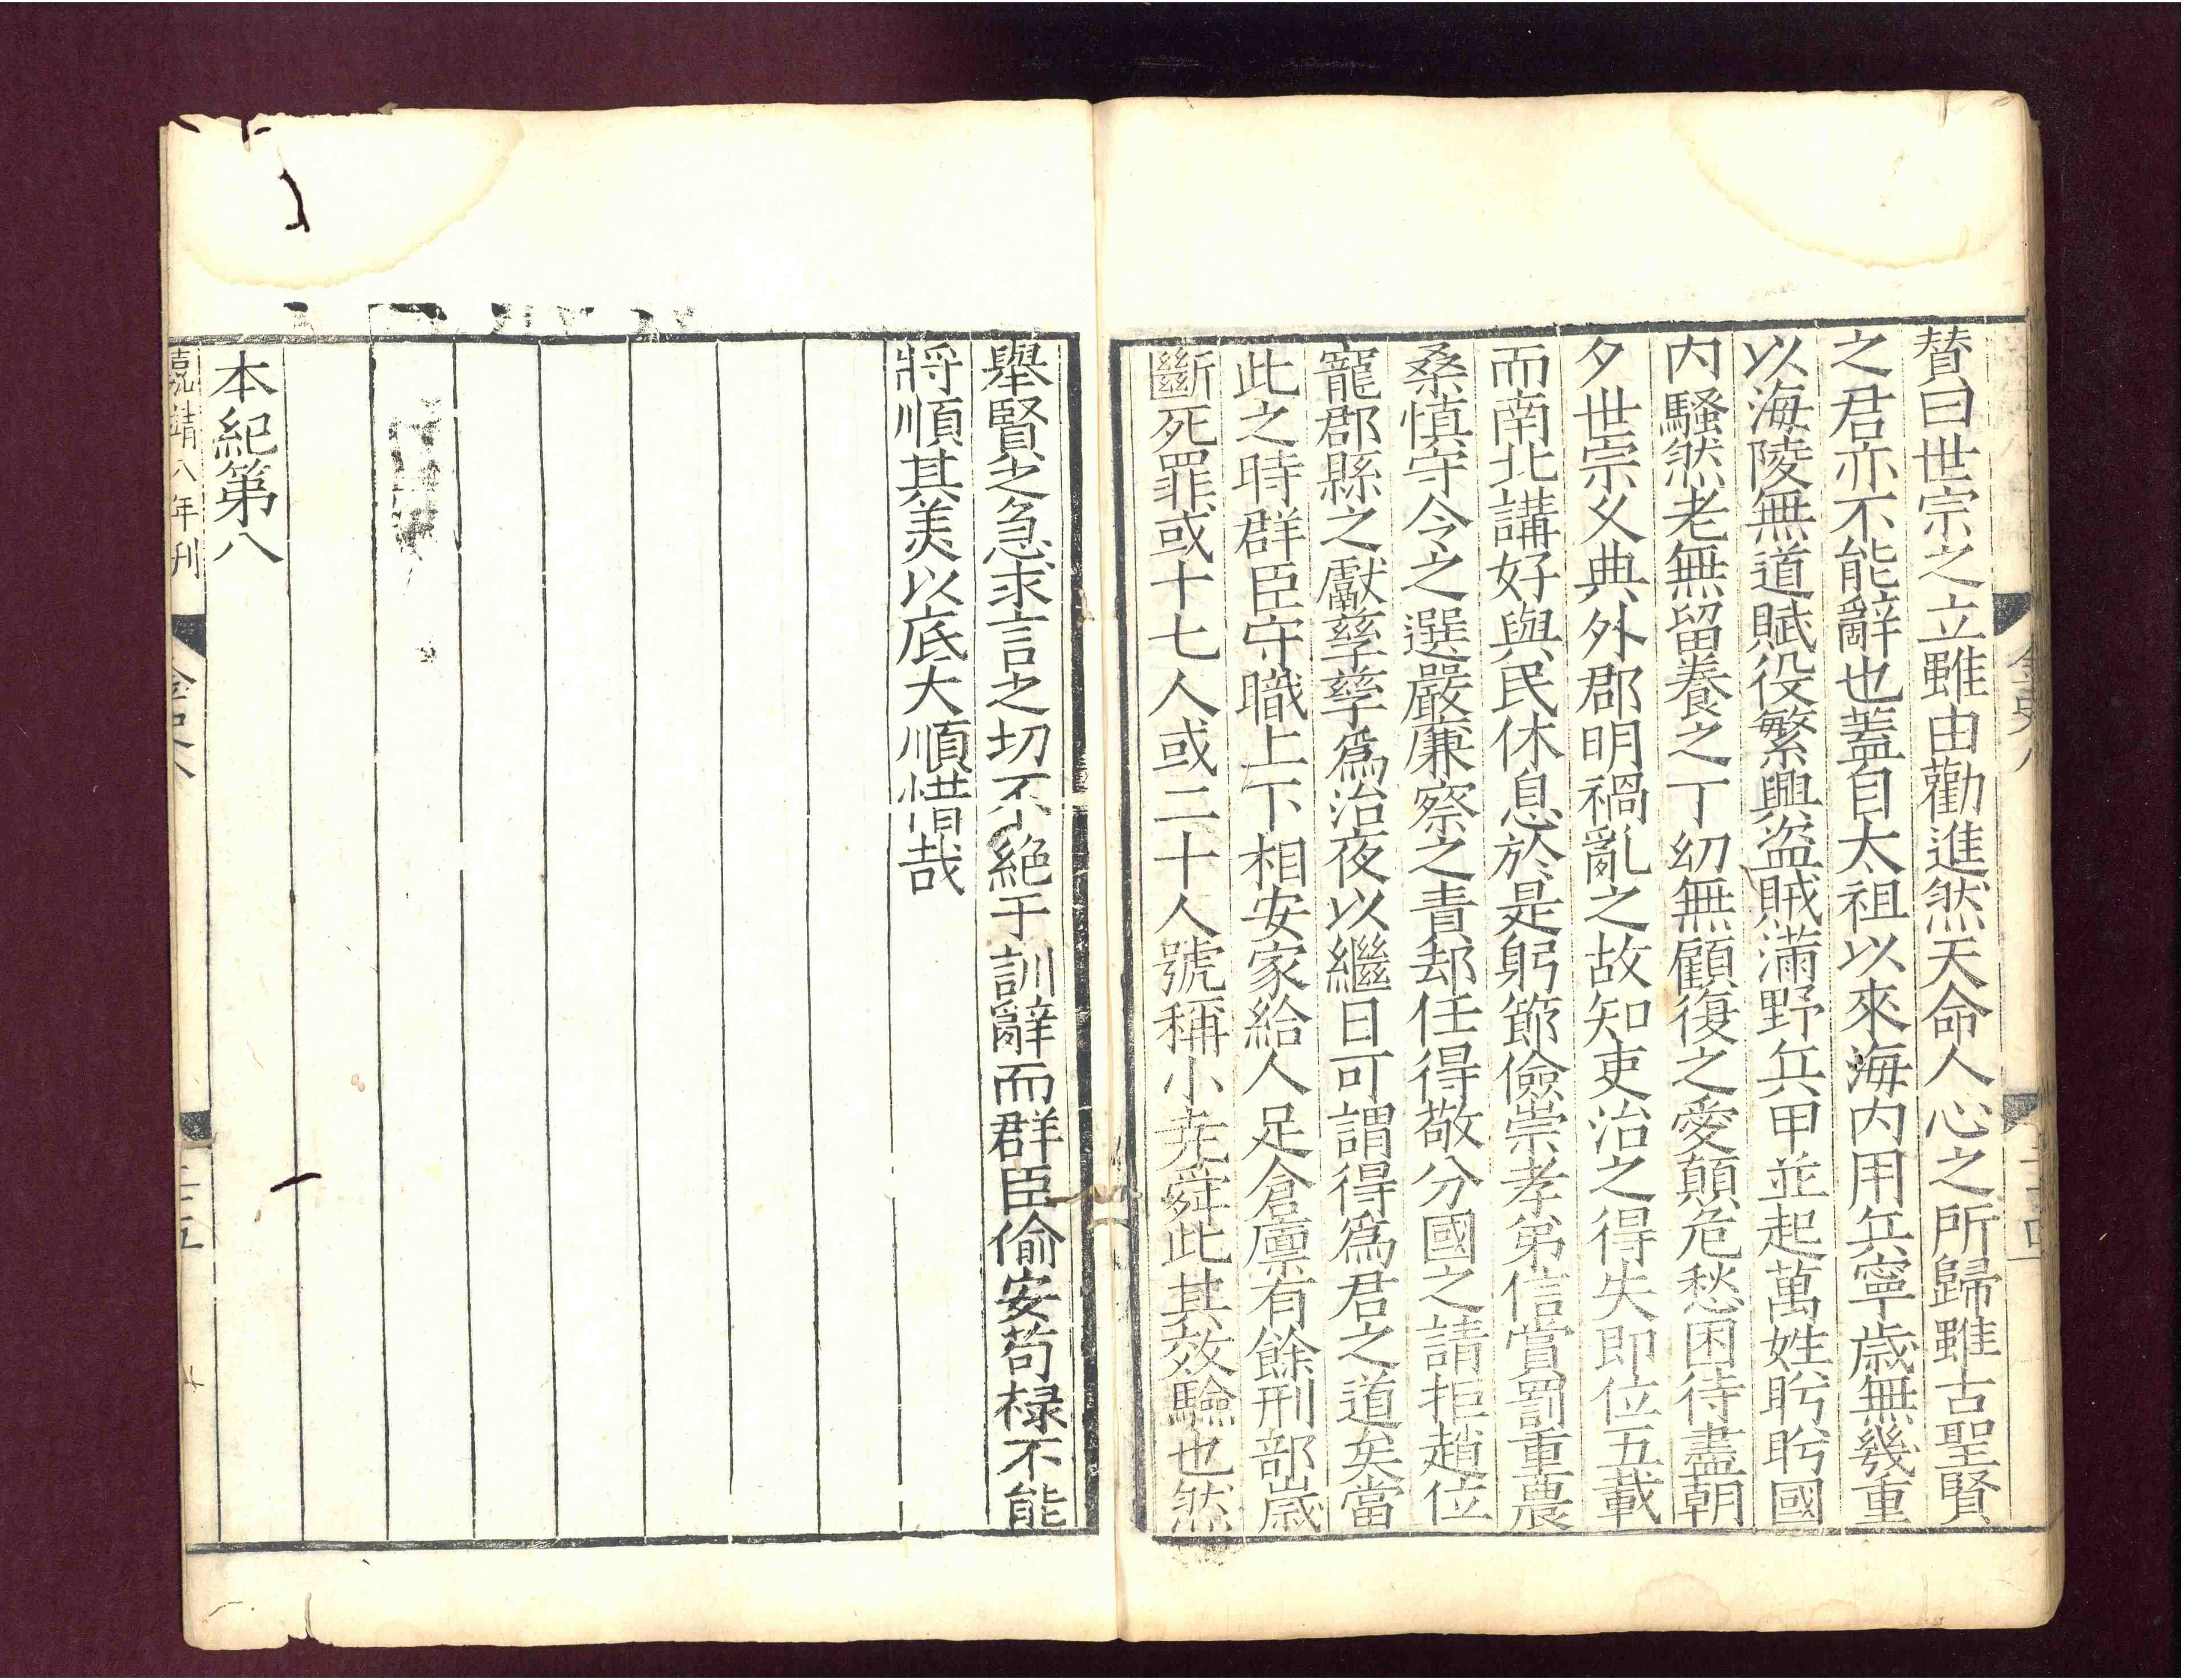 贊曰世宗之立雖由勸進然天命人心之所歸雖古聖賢
之君亦不能辭也蓋自太祖以來海内用兵寧歲無幾重
以海陵無道賦役繁興盜賊滿野兵甲並起萬姓盻盻國
内騷然老無留養之丁幼無顧復之愛顛危愁困待盡朝
夕世宗乆典外郡明禍亂之故知吏治之得失即位五載
而南北講好與民休息於是躬節儉崇孝弟信賞罰重農
桑慎守令之選嚴廉察之責却任得敬分國之請拒趙位
寵郡縣之獻孳孳爲治夜以繼日可謂得爲君之道矣當
此之時群臣守職上下相安家給人足倉廩有餘刑部歲
斷死罪或十七人或二十人號稱小尭舜此其效驗也然
舉賢之急求言之切不絶于訓辭而群臣偷安苟禄不能
將順其美以底大順惜哉
本紀第八
嘉靖八年刊
金史八
二十五